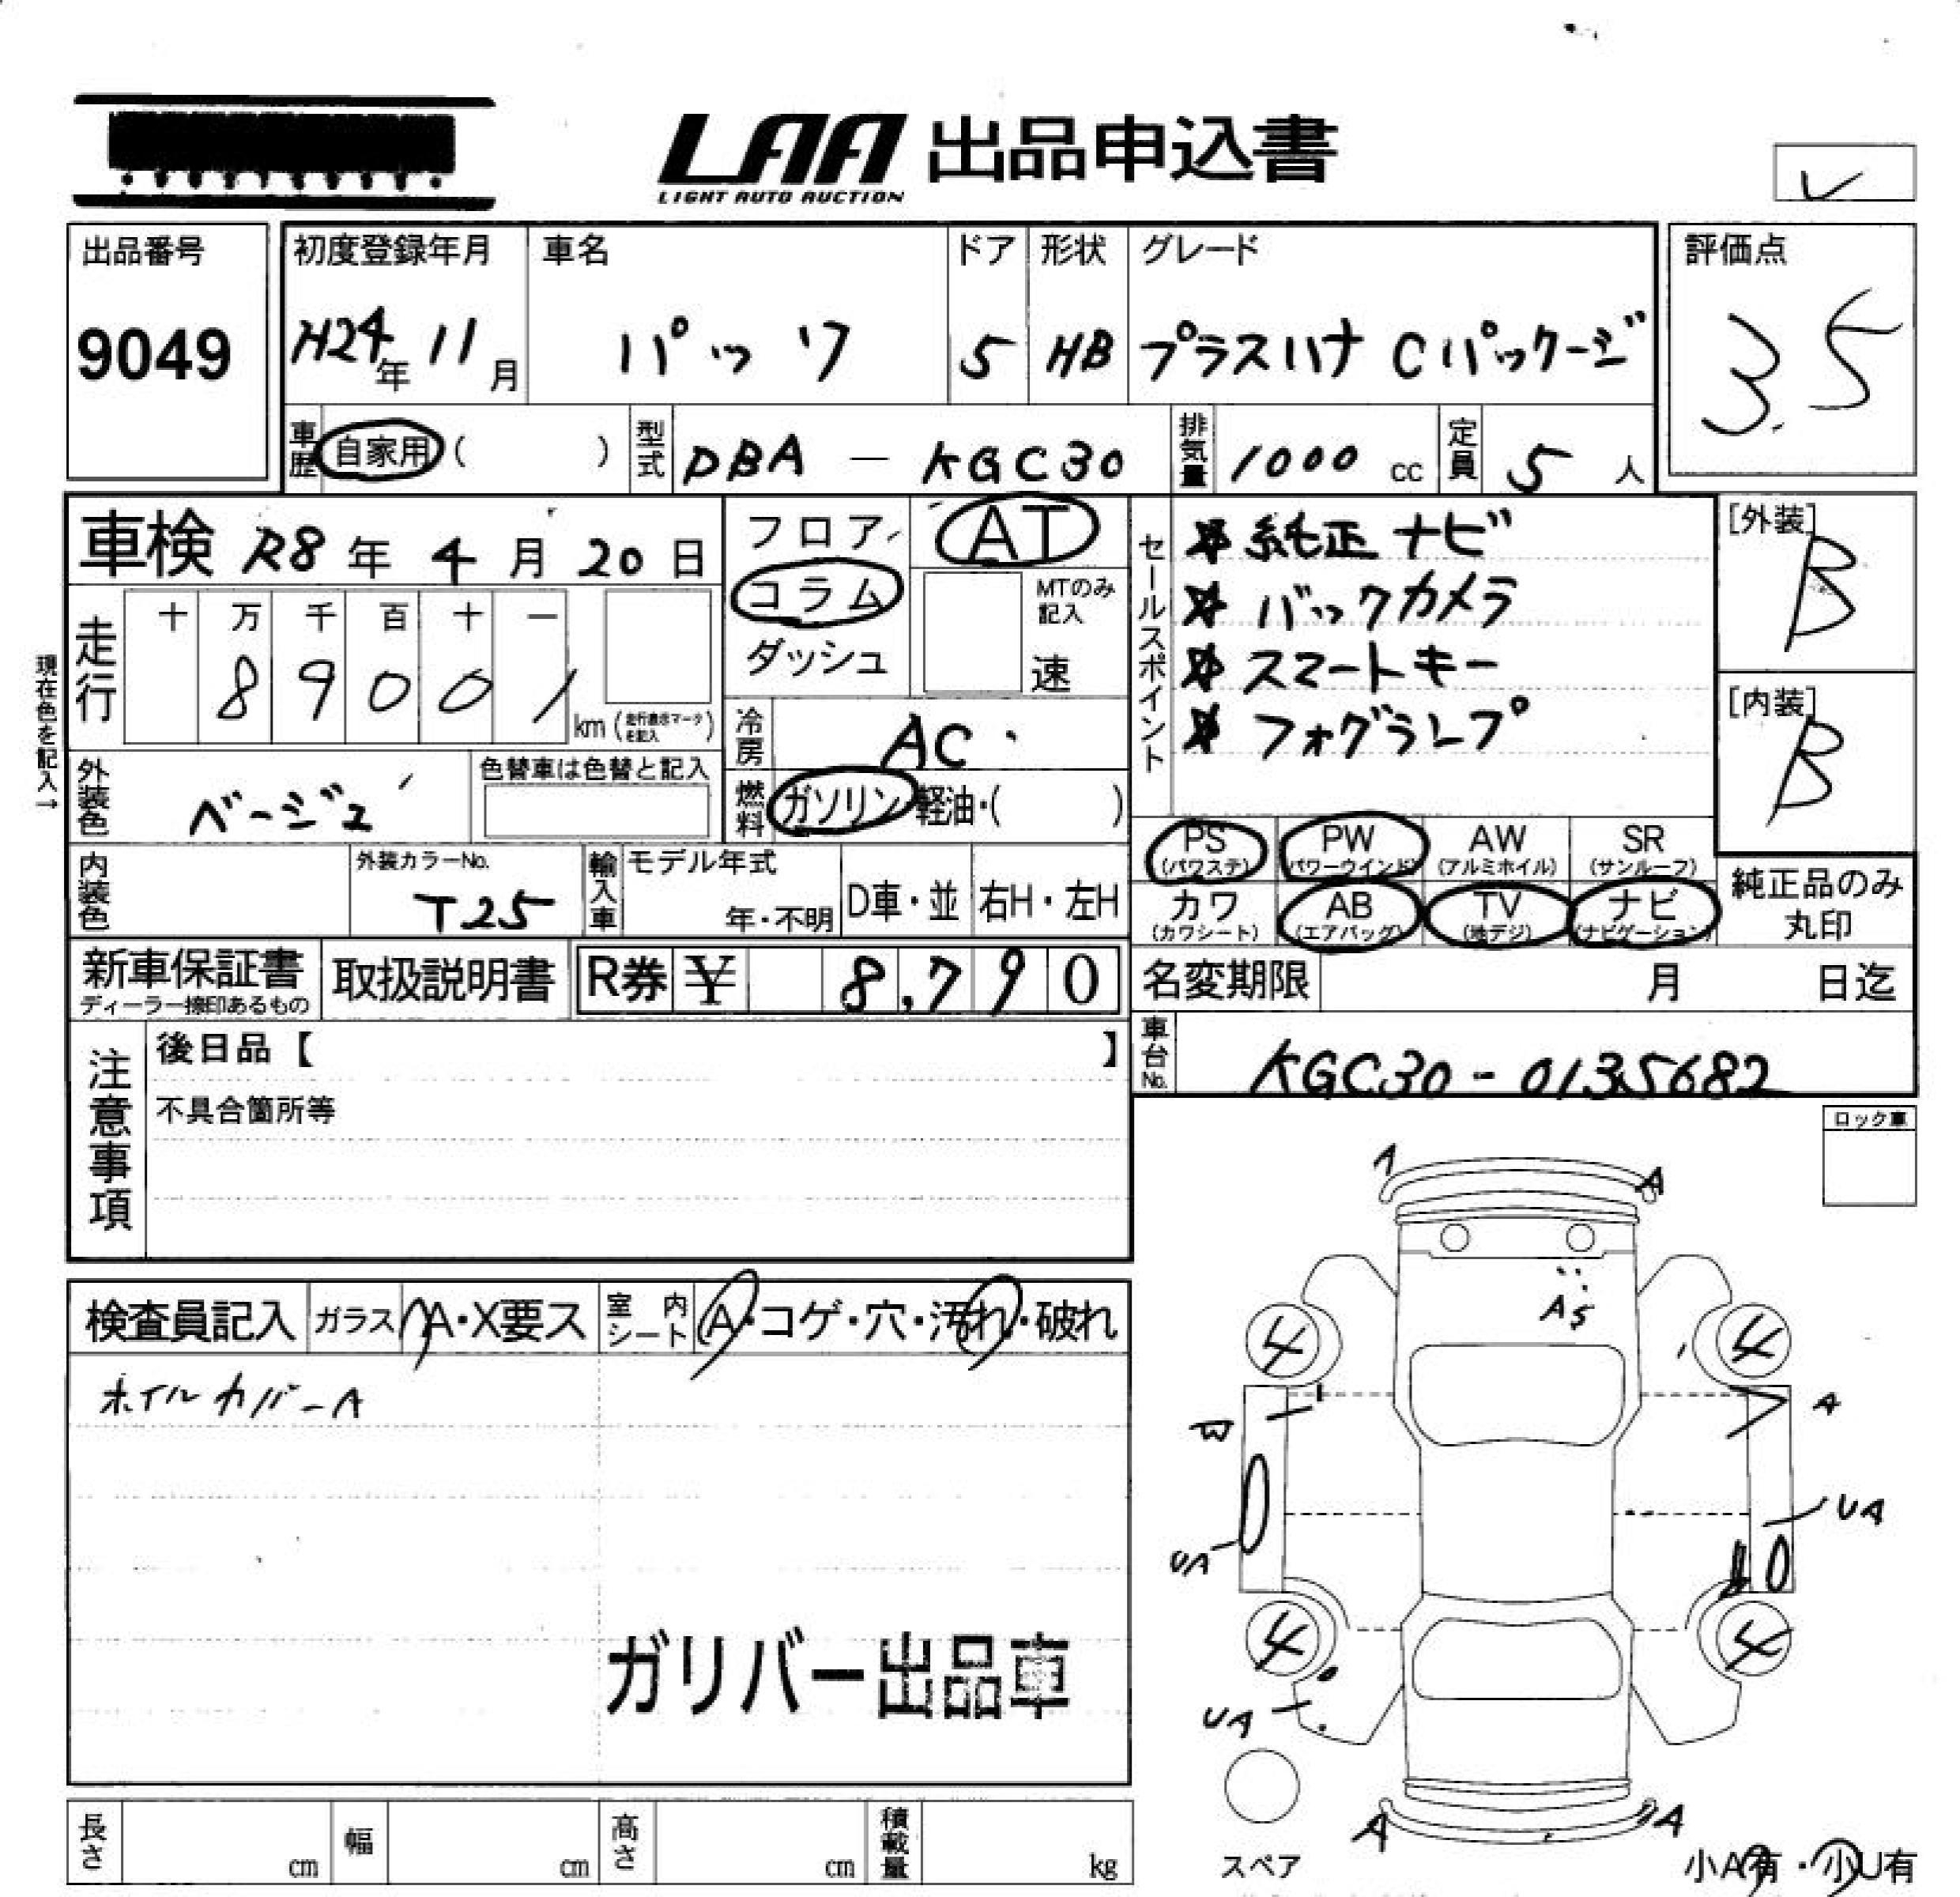 LAA 出品申込書
LIGHT AUTO AUCTION
出品番号
9049
初度登録年月
H24年 11月
車名
パッソ
ドア
5
形状
HB
グレード
プラスハナ Cパッケージ
評価点
3.5
車歴 自家用 ( )
型式 DBA - KGC30
排気量 1000 cc
定員 5 人
車検 R8年 4月 20日
現在色を記入→
走行 十 万 千 百 十 一
8 9 0 0 1 km (走行表示マークを記入)
フロア
コラム
ダッシュ
AT
MTのみ記入
速
冷房 AC
燃料 ガソリン 軽油・( )
セールスポイント
☆ 純正ナビ
☆ バックカメラ
☆ スマートキー
☆ フォグランプ
[外装]
B
[内装]
B
外装色 ベージュ
色替車は色替と記入
内装色
外装カラーNo.
T25
輸入車
モデル年式
年・不明
D車・並
右H・左H
PS (パワステ)
PW (パワーウインド)
AW (アルミホイル)
SR (サンルーフ)
カワ (カワシート)
AB (エアバッグ)
TV (地デジ)
ナビ (ナビゲーション)
純正品のみ丸印
新車保証書
ディーラー捺印あるもの
取扱説明書
R券 ¥ 8,790
名変期限 月 日迄
車台No. KGC30-0135682
注意事項
後日品【 】
不具合箇所等
ロック車
検査員記入
ガラス A・X要ス
室内シート A・コゲ・穴・汚れ・破れ
ホイルカバーA
ガリバー出品車
A
A
AS
4
4
W
A
UA
UA
4
4
UA
A
A
スペア
小A有・小U有
長さ cm
幅 cm
高さ cm
積載量 kg